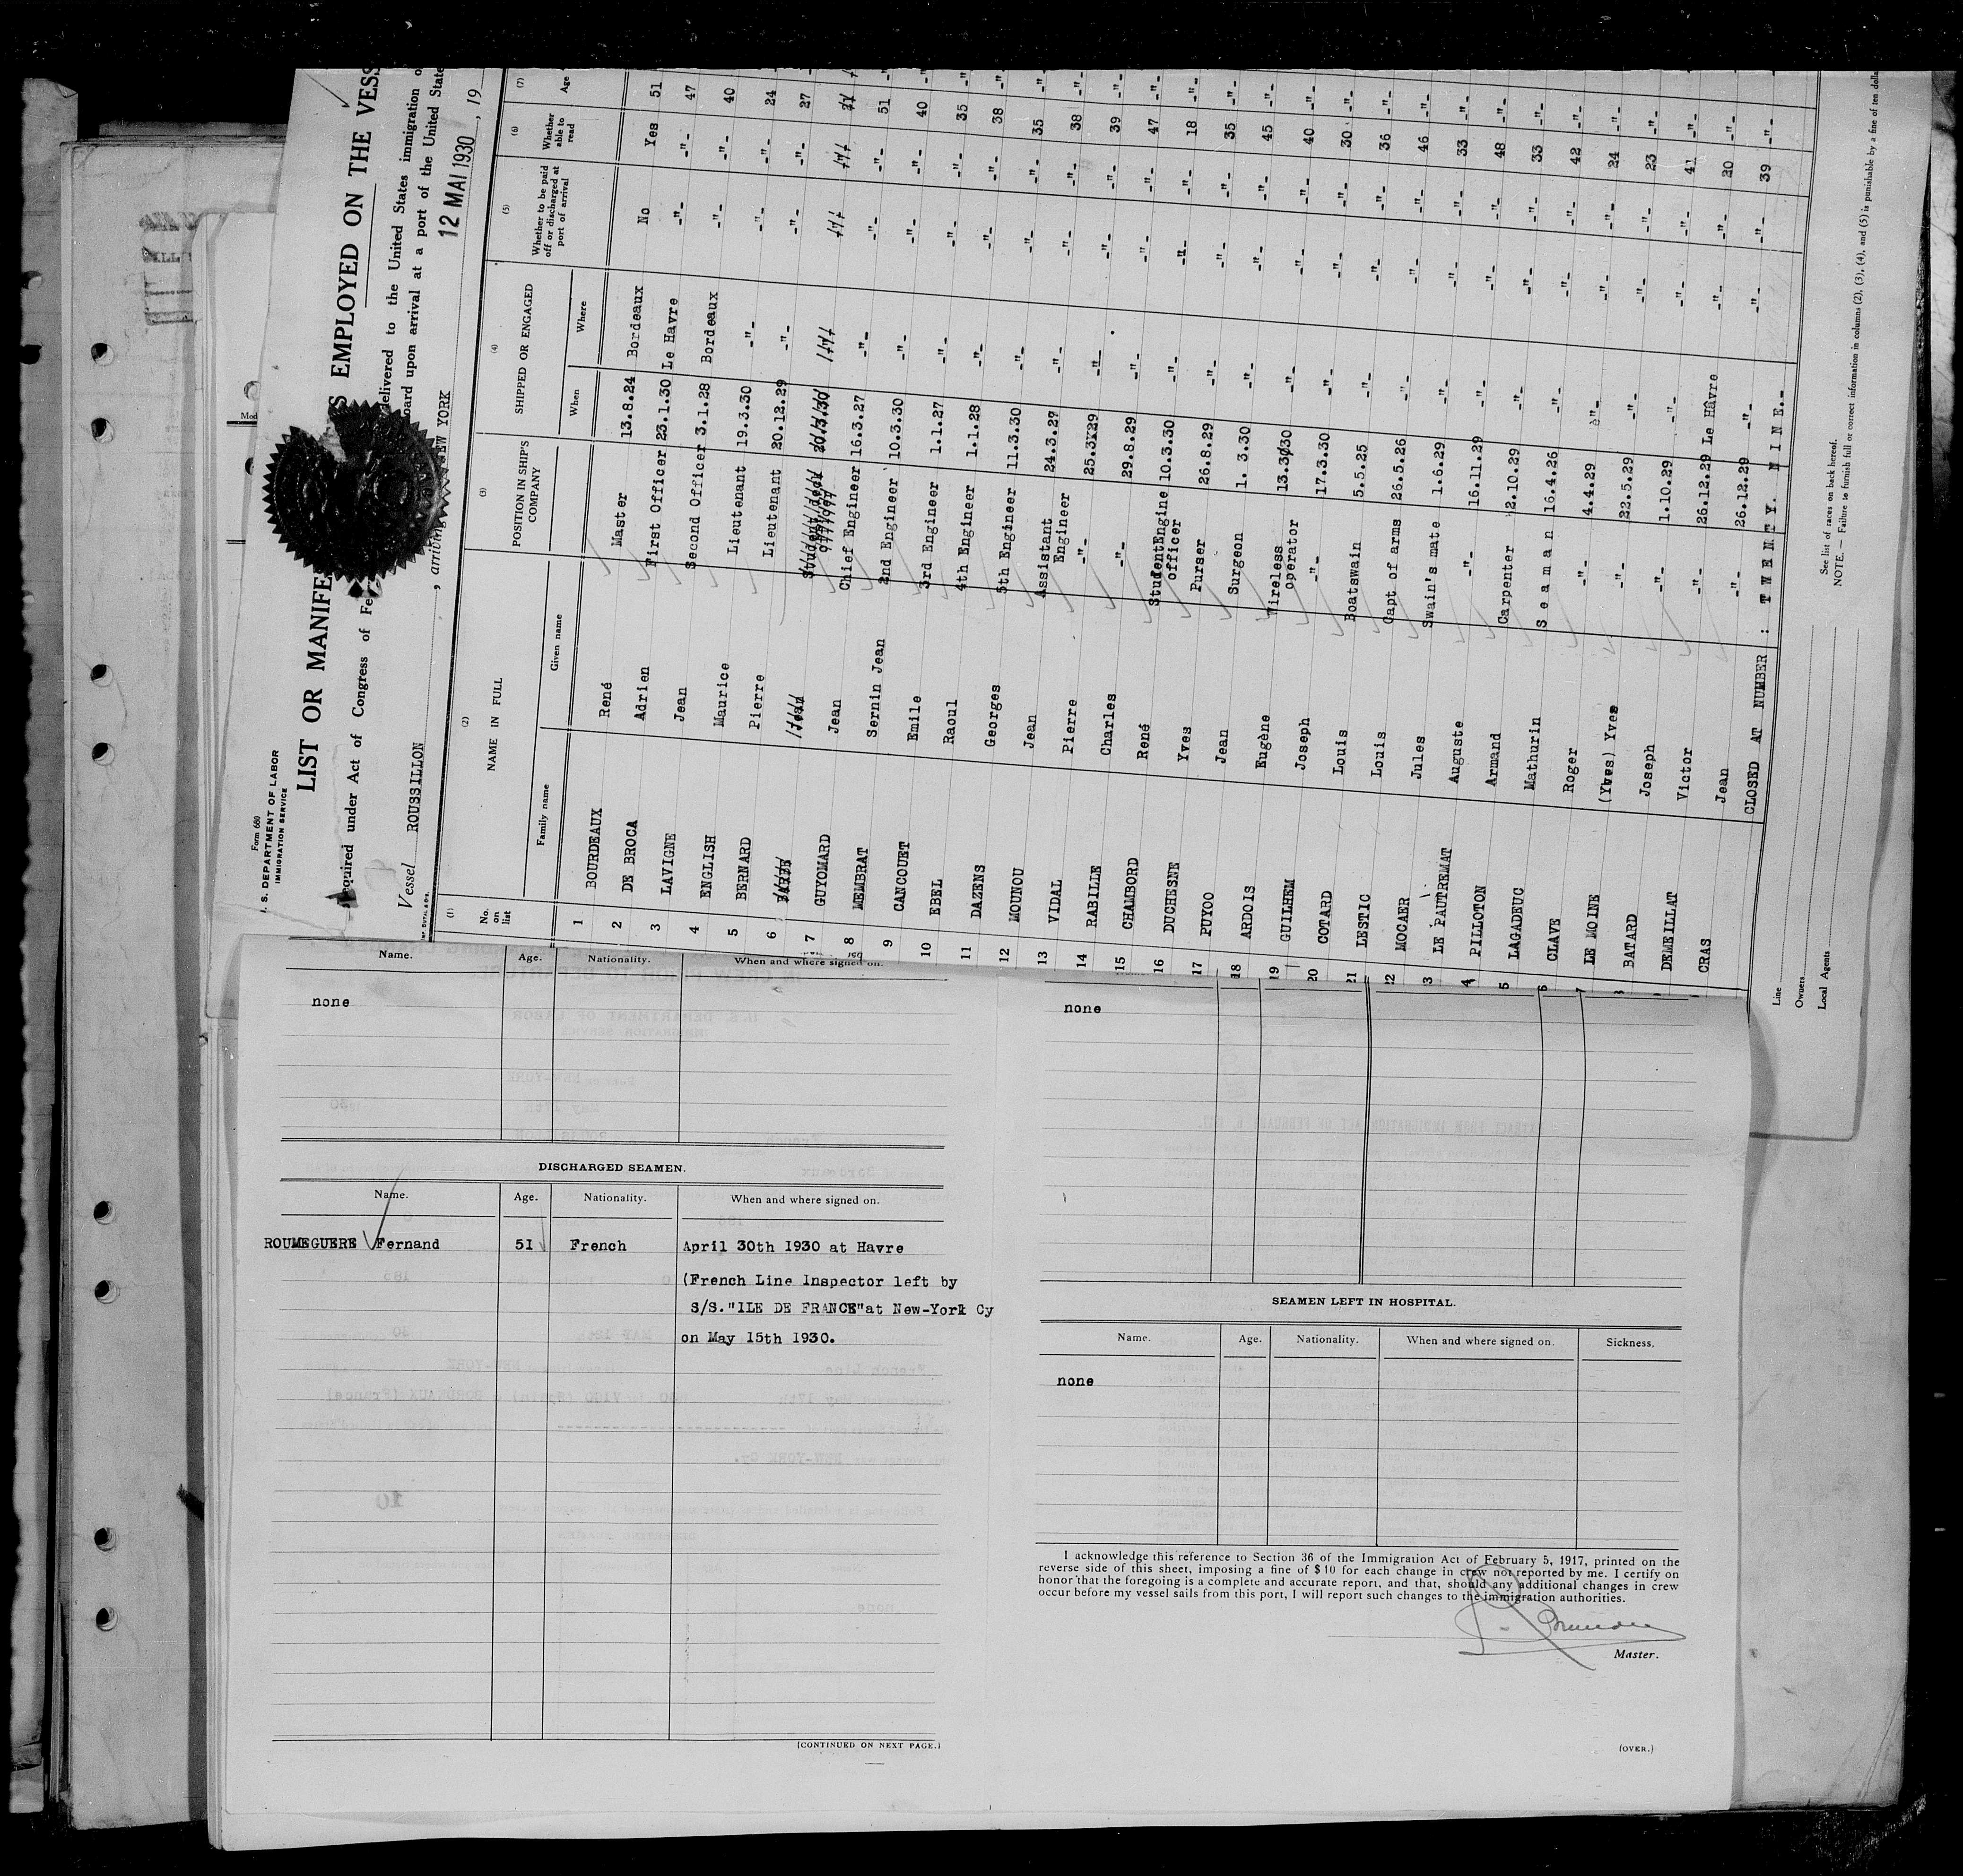 Form 680
U. S. DEPARTMENT OF LABOR
IMMIGRATION SERVICE
LIST OR MANIFE S EMPLOYED ON THE VESS
equired under Act of Congress of Fe delivered to the United States immigration o
oard upon arrival at a port of the United State
Vessel ROUSSILLON , arriving NEW YORK 12 MAI 1930 , 19
(1) (2) (3) (4) (5) (6) (7)
No. on list NAME IN FULL POSITION IN SHIP'S COMPANY SHIPPED OR ENGAGED Whether to be paid off or discharged at port of arrival Whether able to read Age
Family name Given name When Where
1 BOURDEAUX René Master 13.8.24 Bordeaux No Yes 51
2 DE BROCA Adrien First Officer 23.1.30 Le Havre -"- -"- 47
3 LAVIGNE Jean Second Officer 3.1.28 Bordeaux -"- -"- 40
4 ENGLISH Maurice Lieutenant 19.3.30 -"- -"- -"- 24
5 BERNARD Pierre Lieutenant 20.12.29 -"- -"- -"- 27
6 Jean
7 GUYOMARD Jean Chief Engineer 16.3.27 -"- -"- -"- 51
8 MEMBRAT Sernin Jean 2nd Engineer 10.3.30 -"- -"- -"- 40
9 CANCOUET Emile 3rd Engineer 1.1.27 -"- -"- -"- 35
10 EBEL Raoul 4th Engineer 1.1.28 -"- -"- -"- 38
11 DAZENS Georges 5th Engineer 11.3.30 -"- -"- -"- 35
12 MOUNOU Jean Assistant Engineer 24.3.27 -"- -"- -"- 38
13 VIDAL Pierre -"- 25.3.29 -"- -"- -"- 39
14 RABILLE Charles -"- 29.8.29 -"- -"- -"- 47
15 CHAMBORD René StudentEngine officer 10.3.30 -"- -"- -"- 18
16 DUCHESNE Yves Purser 26.8.29 -"- -"- -"- 35
17 PUYOO Jean Surgeon 1.3.30 -"- -"- -"- 45
18 ARDOIS Eugène Wireless operator 13.3.30 -"- -"- -"- 40
19 GUILHEM Joseph -"- 17.3.30 -"- -"- -"- 30
20 COTARD Louis Boatswain 5.5.25 -"- -"- -"- 36
21 LESTIC Louis Capt of arms 26.5.26 -"- -"- -"- 46
22 MOCAER Jules Swain's mate 1.6.29 -"- -"- -"- 33
3 LE PAUTREMAT Auguste -"- 16.11.29 -"- -"- -"- 48
4 PILLOTON Armand Carpenter 2.10.29 -"- -"- -"- 33
5 LAGADEUC Mathurin Seaman 16.4.26 -"- -"- -"- 42
6 CLAVE Roger -"- 4.4.29 -"- -"- -"- 24
7 LE MOINE (Yves) Yves -"- 22.5.29 -"- -"- -"- 23
BATARD Joseph -"- 1.10.29 -"- -"- -"- 41
DEMEILLAT Victor -"- 26.12.29 Le Hâvre -"- -"- 20
CRAS Jean -"- 26.12.29 -"- -"- -"- 39
CLOSED AT NUMBER : TWENTY. NINE.-
Line
Owners
Local Agents
See list of races on back hereof.
NOTE. — Failure to furnish full or correct information in columns (2), (3), (4), and (5) is punishable by a fine of ten dolla
Name. Age. Nationality. When and where signed on.
none
DISCHARGED SEAMEN.
Name. Age. Nationality. When and where signed on.
ROUMEGUERE Fernand 51 French April 30th 1930 at Havre
(French Line Inspector left by
S/S."ILE DE FRANCE"at New-York Cy
on May 15th 1930.
(CONTINUED ON NEXT PAGE.)
none
SEAMEN LEFT IN HOSPITAL.
Name. Age. Nationality. When and where signed on. Sickness.
none
I acknowledge this reference to Section 36 of the Immigration Act of February 5, 1917, printed on the
reverse side of this sheet, imposing a fine of $10 for each change in crew not reported by me. I certify on
honor that the foregoing is a complete and accurate report, and that, should any additional changes in crew
occur before my vessel sails from this port, I will report such changes to the immigration authorities.
Master.
(OVER.)